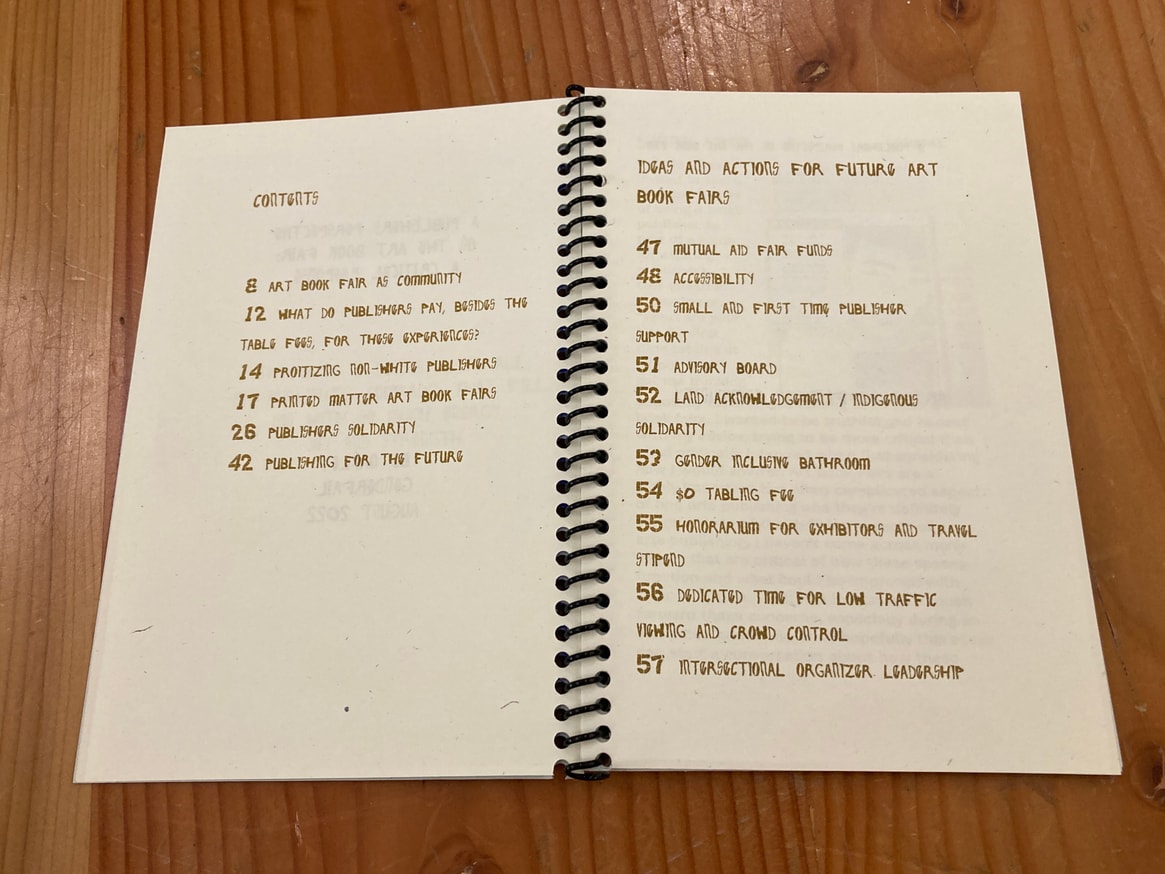 CONTENTS
8 ART BOOK FAIR AS COMMUNITY
12 WHAT DO PUBLISHERS PAY, BESIDES THE
TABLE FEES, FOR THESE EXPERIENCES?
14 PROITIZING NON-WHITE PUBLISHERS
17 PRINTED MATTER ART BOOK FAIRS
26 PUBLISHERS SOLIDARITY
42 PUBLISHING FOR THE FUTURE
IDEAS AND ACTIONS FOR FUTURE ART
BOOK FAIRS
47 MUTUAL AID FAIR FUNDS
48 ACCESSIBILITY
50 SMALL AND FIRST TIME PUBLISHER
SUPPORT
51 ADVISORY BOARD
52 LAND ACKNOWLEDGEMENT / INDIGENOUS
SOLIDARITY
53 GENDER INCLUSIVE BATHROOM
54 $0 TABLING FEE
55 HONORARIUM FOR EXHIBITORS AND TRAVEL
STIPEND
56 DEDICATED TIME FOR LOW TRAFFIC
VIEWING AND CROWD CONTROL
57 INTERSECTIONAL ORGANIZER LEADERSHIP